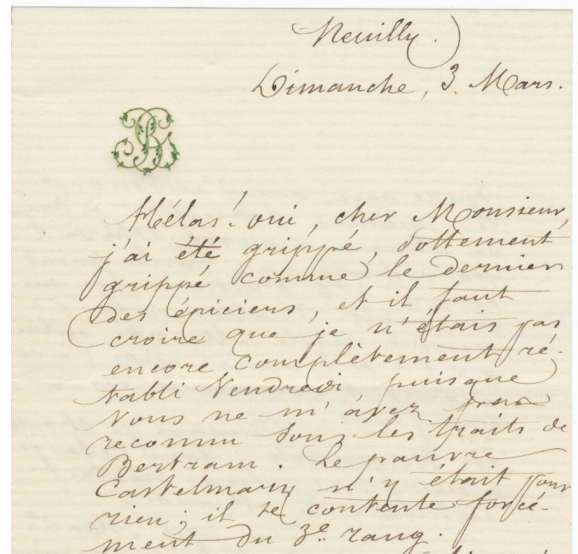 Neuilly.
Dimanche, 3 Mars.
Hélas! oui, cher Monsieur,
j'ai été grippé, sottement
grippé comme le dernier
des épiciers, et il faut
croire que je n'étais pas
encore complètement ré-
tabli Vendredi puisque
vous ne m'avez pas
reconnu sous les traits de
Bertram. Le pauvre
Castelmary n'y était pour
rien; il se contente forcé-
ment du 3e rang.